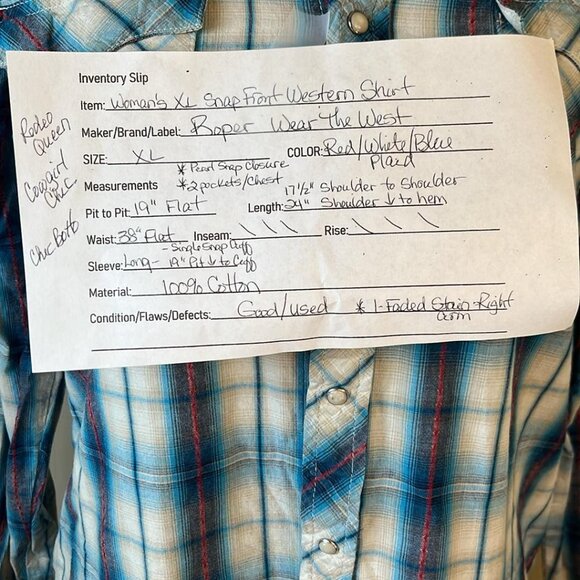 Inventory Slip
Item: Woman's XL Snap Front Western Shirt
Maker/Brand/Label: Roper Wear The West
SIZE: XL COLOR: Red/White/Blue
Plaid
* Pearl Snap Closure
Measurements * 2 pockets/Chest
Pit to Pit: 19" Flat Length: 24" Shoulder ↓ to hem
17 1/2" Shoulder to Shoulder
Waist: 38" Flat Inseam: \ \ \ Rise: \ \ \
- Single Snap Cuff
Sleeve: Long - 19" Pit ↓ to Cuff
Material: 100% Cotton
Condition/Flaws/Defects: Good/used * 1-Faded Stain-Right
arm
Rodeo
Queen
Cowgirl
Chic